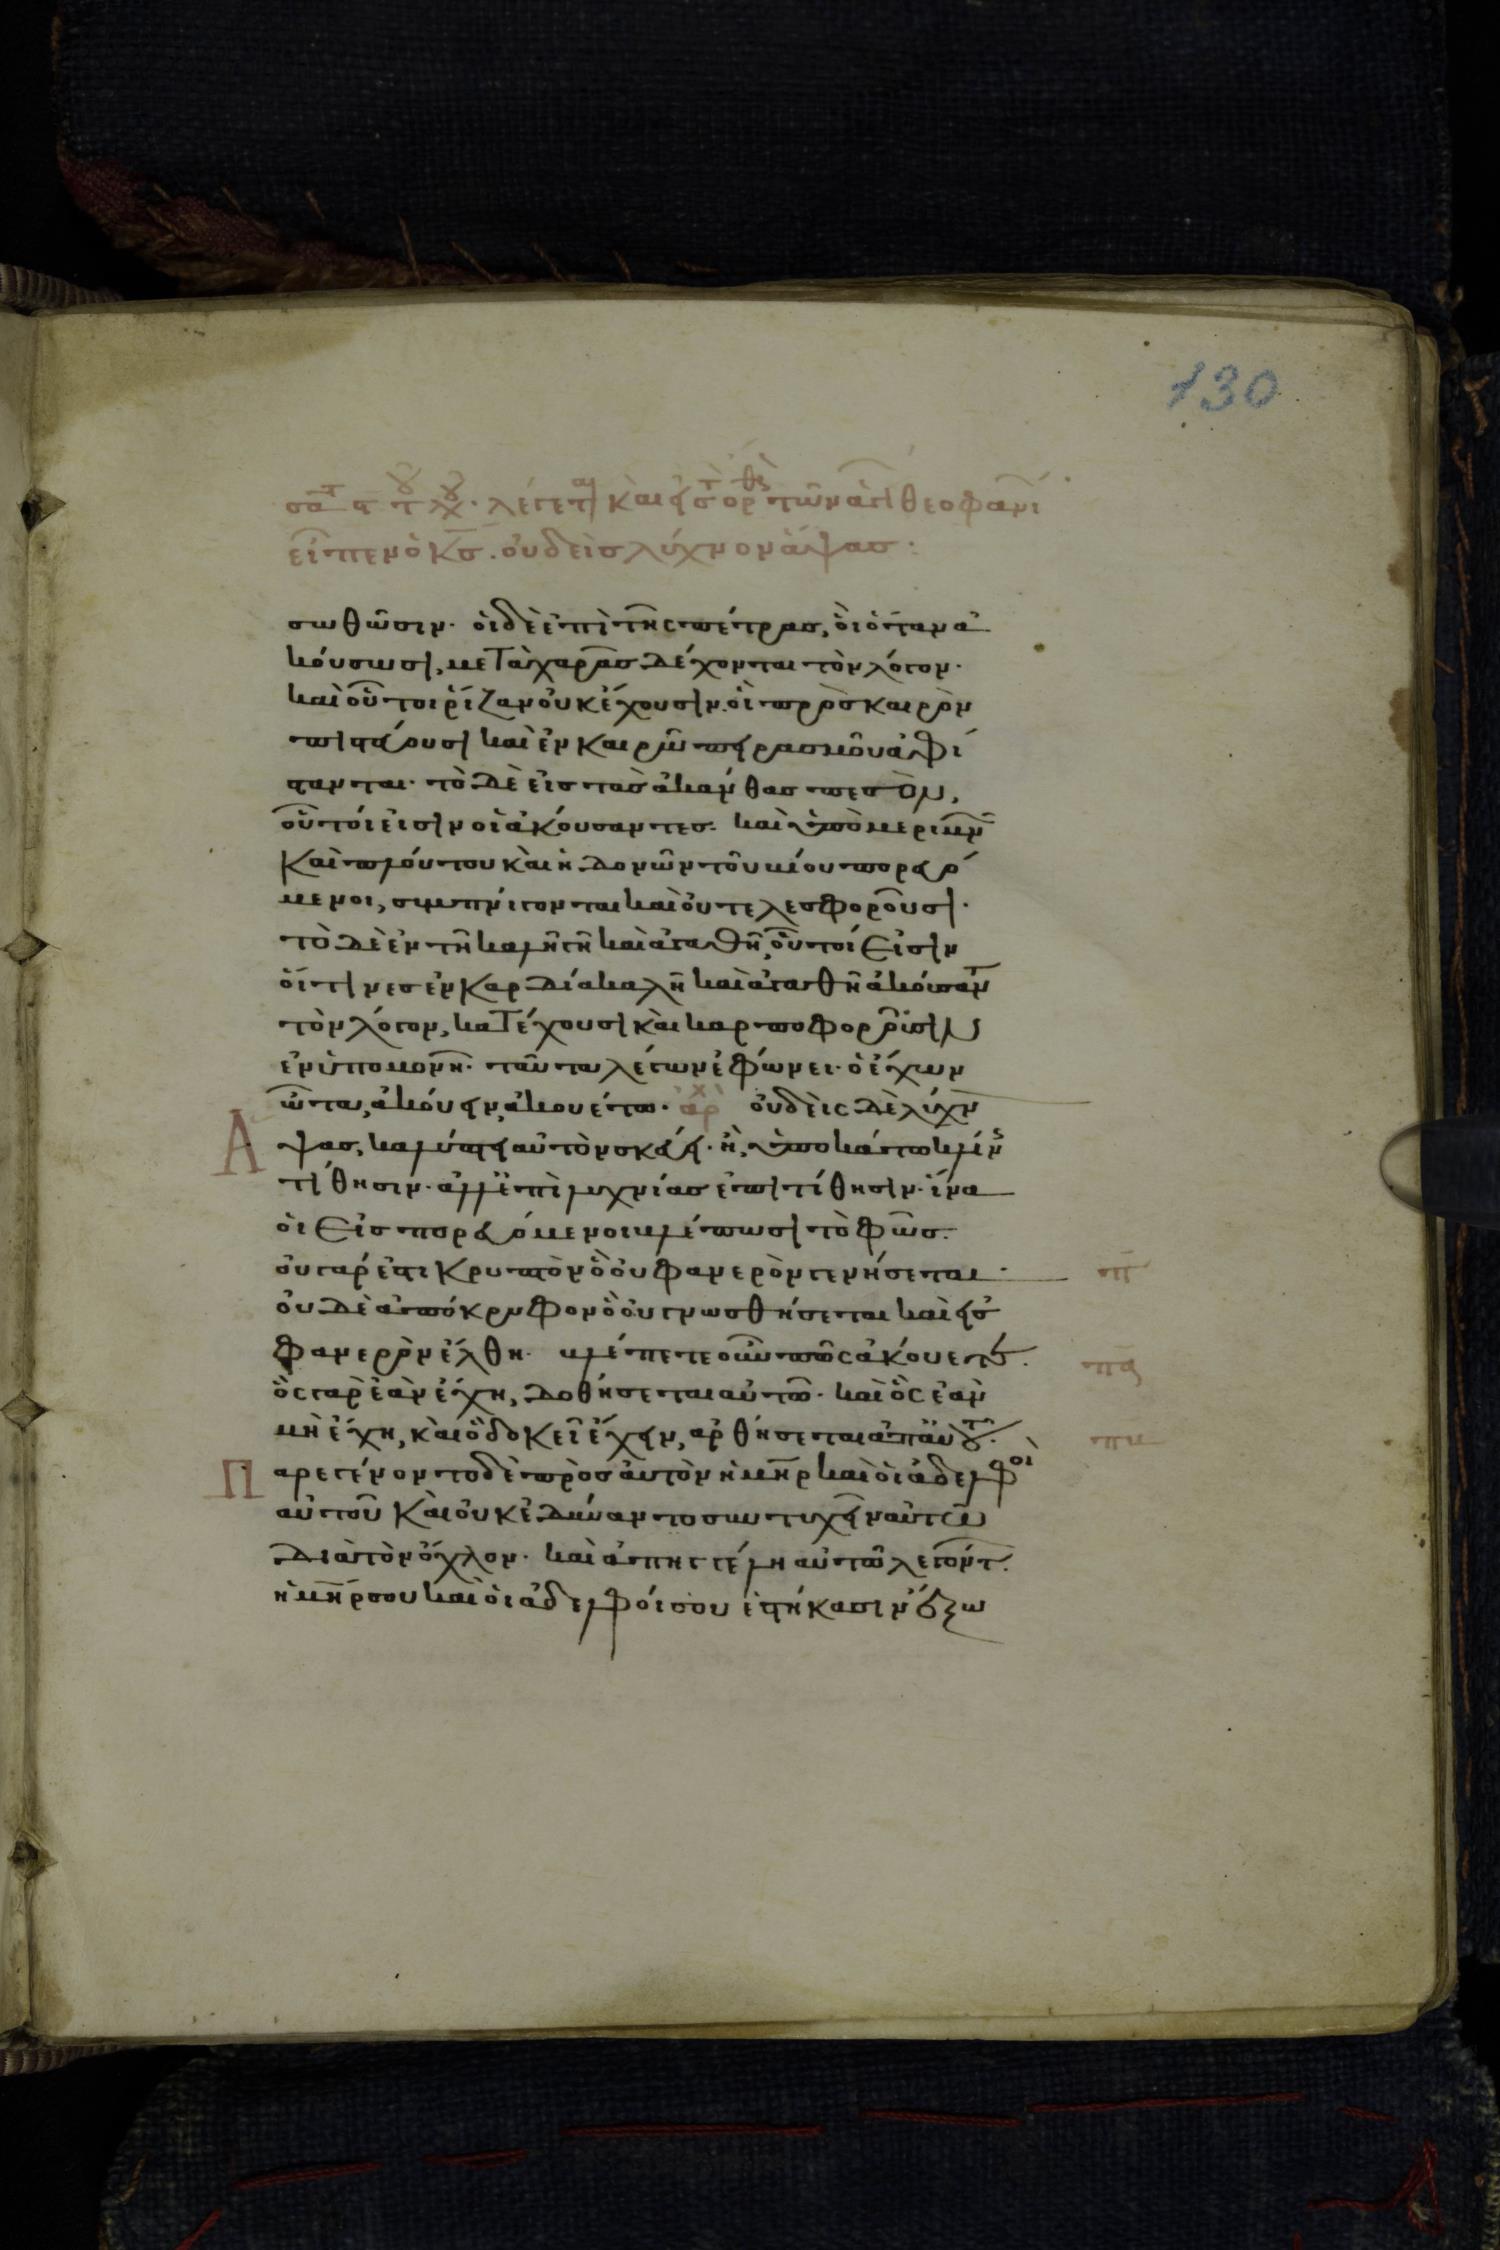 130
σα τ λγ · λέγετ καὶ εἰς τ ὄρθ τῶν ἁγι θεοφανί
εἶπεν ὁ κς. οὐδεὶς λύχνον ἅψας:
σωθῶσιν· οἱ δὲ ἐπὶ τῆς πέτρας, οἳ ὅταν ἀ
κούσωσι, μετὰ χαρᾶς δέχονται τὸν λόγον·
καὶ οὗτοι ῥίζαν οὐκ ἔχουσιν. οἳ πρὸς καιρὸν
πιστεύουσι καὶ ἐν καιρῶ πειρασμοῦ ἀφί
στανται· τὸ δὲ εἰς τὰς ἀκάνθας πεσὸν,
οὗτοί εἰσιν οἱ ἀκούσαντες· καὶ ὑπὸ μεριμνῶν
καὶ πλούτου καὶ ἡδονῶν τοῦ βίου πορευό
μενοι, συμπνίγονται καὶ οὐ τελεσφοροῦσι·
τὸ δὲ ἐν τῆ καλῆ γῆ καὶ ἀγαθῆ, οὗτοί εἰσιν
οἵτινες ἐν καρδία καλῆ καὶ ἀγαθῆ ἀκούσαντ
τὸν λόγον, κατέχουσι καὶ καρποφοροῦσιν
ἐν ὑπομονῆ· ταῦτα λέγων ἐφώνει· ὁ ἔχων
ὦτα, ἀκούειν, ἀκουέτω· ἀρχ οὐδεὶς δὲ λύχν
Αψας, καλύπτει αὐτὸν σκεύει· ἢ, ὑποκάτω κλίνς
τίθησιν· ἀλλ' ἐπὶ λυχνίας ἐπιτίθησιν· ἵνα
οἱ εἰσπορευόμενοι βλέπωσι τὸ φῶς.
οὐ γάρ ἐστι κρυπτὸν ὃ οὐ φανερὸν γενήσεται· π
οὐδὲ ἀπόκρυφον ὃ οὐ γνωσθήσεται καὶ εἰς
φανερὸν ἔλθη· βλέπετε οὖν πῶς ἀκούετε. πα
ὃς γὰρ ἐὰν ἔχη, δοθήσεται αὐτῶ· καὶ ὃς ἐὰν
μὴ ἔχη, καὶ ὃ δοκεῖ ἔχειν, ἀρθήσεται ἀπ' αὐτοῦ. πβ
Παρεγένοντο δὲ πρὸς αὐτὸν ἡ μηρ καὶ οἱ ἀδελφοὶ
αὐτοῦ καὶ οὐκ ἐδύναντο συντυχεῖν αὐτῶ
διὰ τὸν ὄχλον· καὶ ἀπηγγέλη αὐτῶ λεγόντ.
ἡ μηρ σου καὶ οἱ ἀδελφοί σου ἑστήκασιν ἔξω